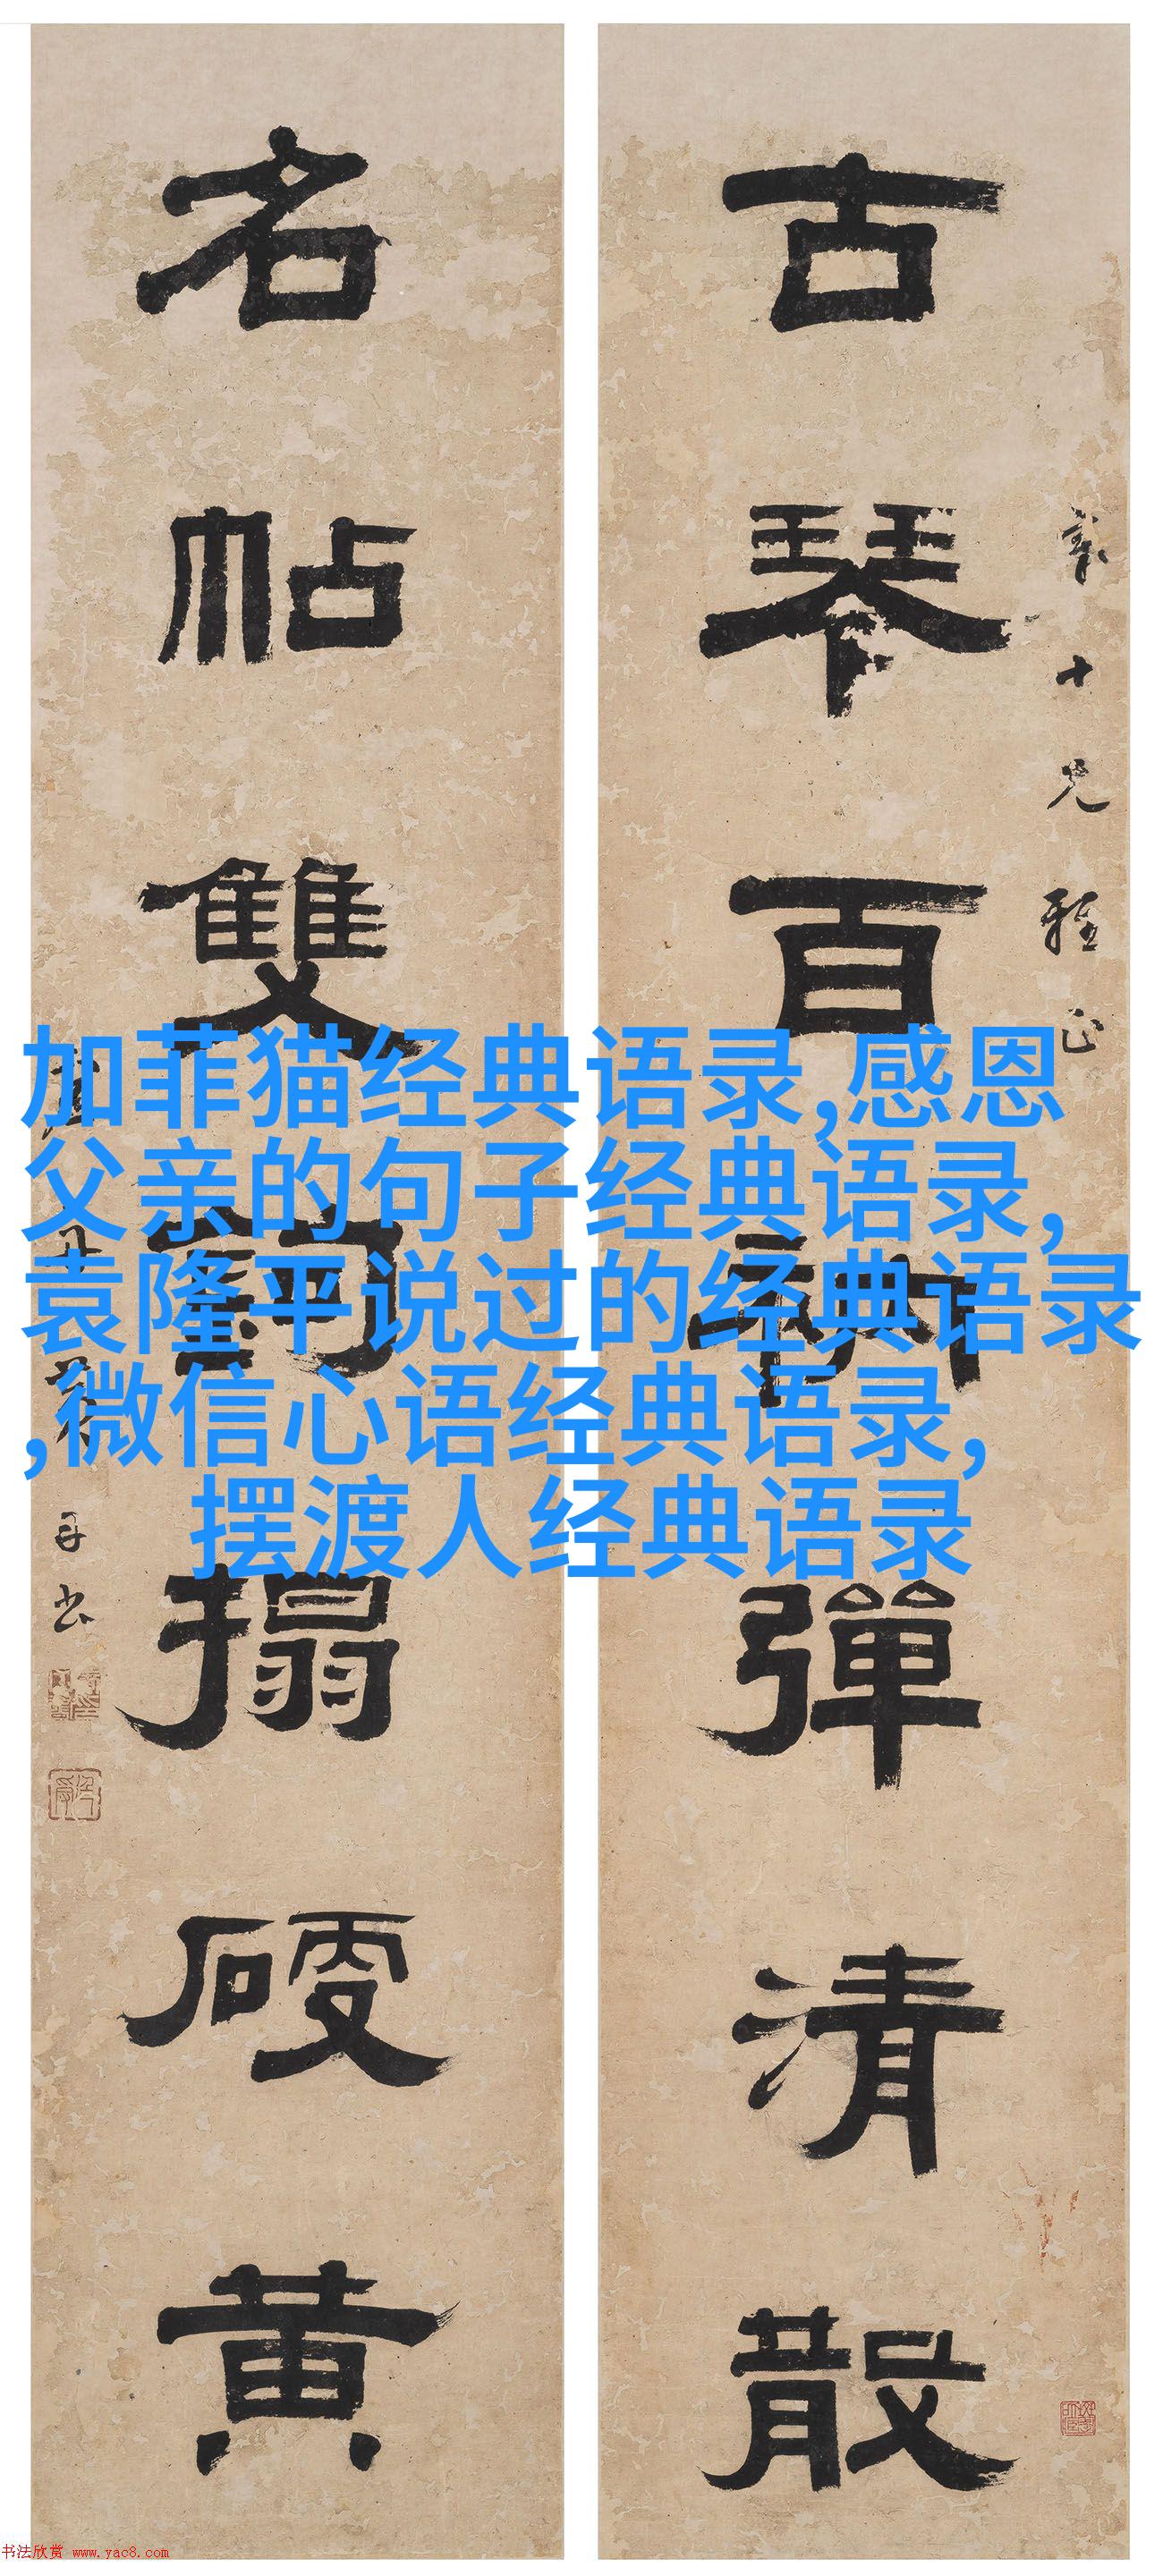 古琴百衲彈清散
名帖雙鉤搨硬黄
十兄雅正
加菲猫经典语录,感恩
父亲的句子经典语录,
袁隆平说过的经典语录
,微信心语经典语录,
摆渡人经典语录
书法欣赏 www.yac8.com